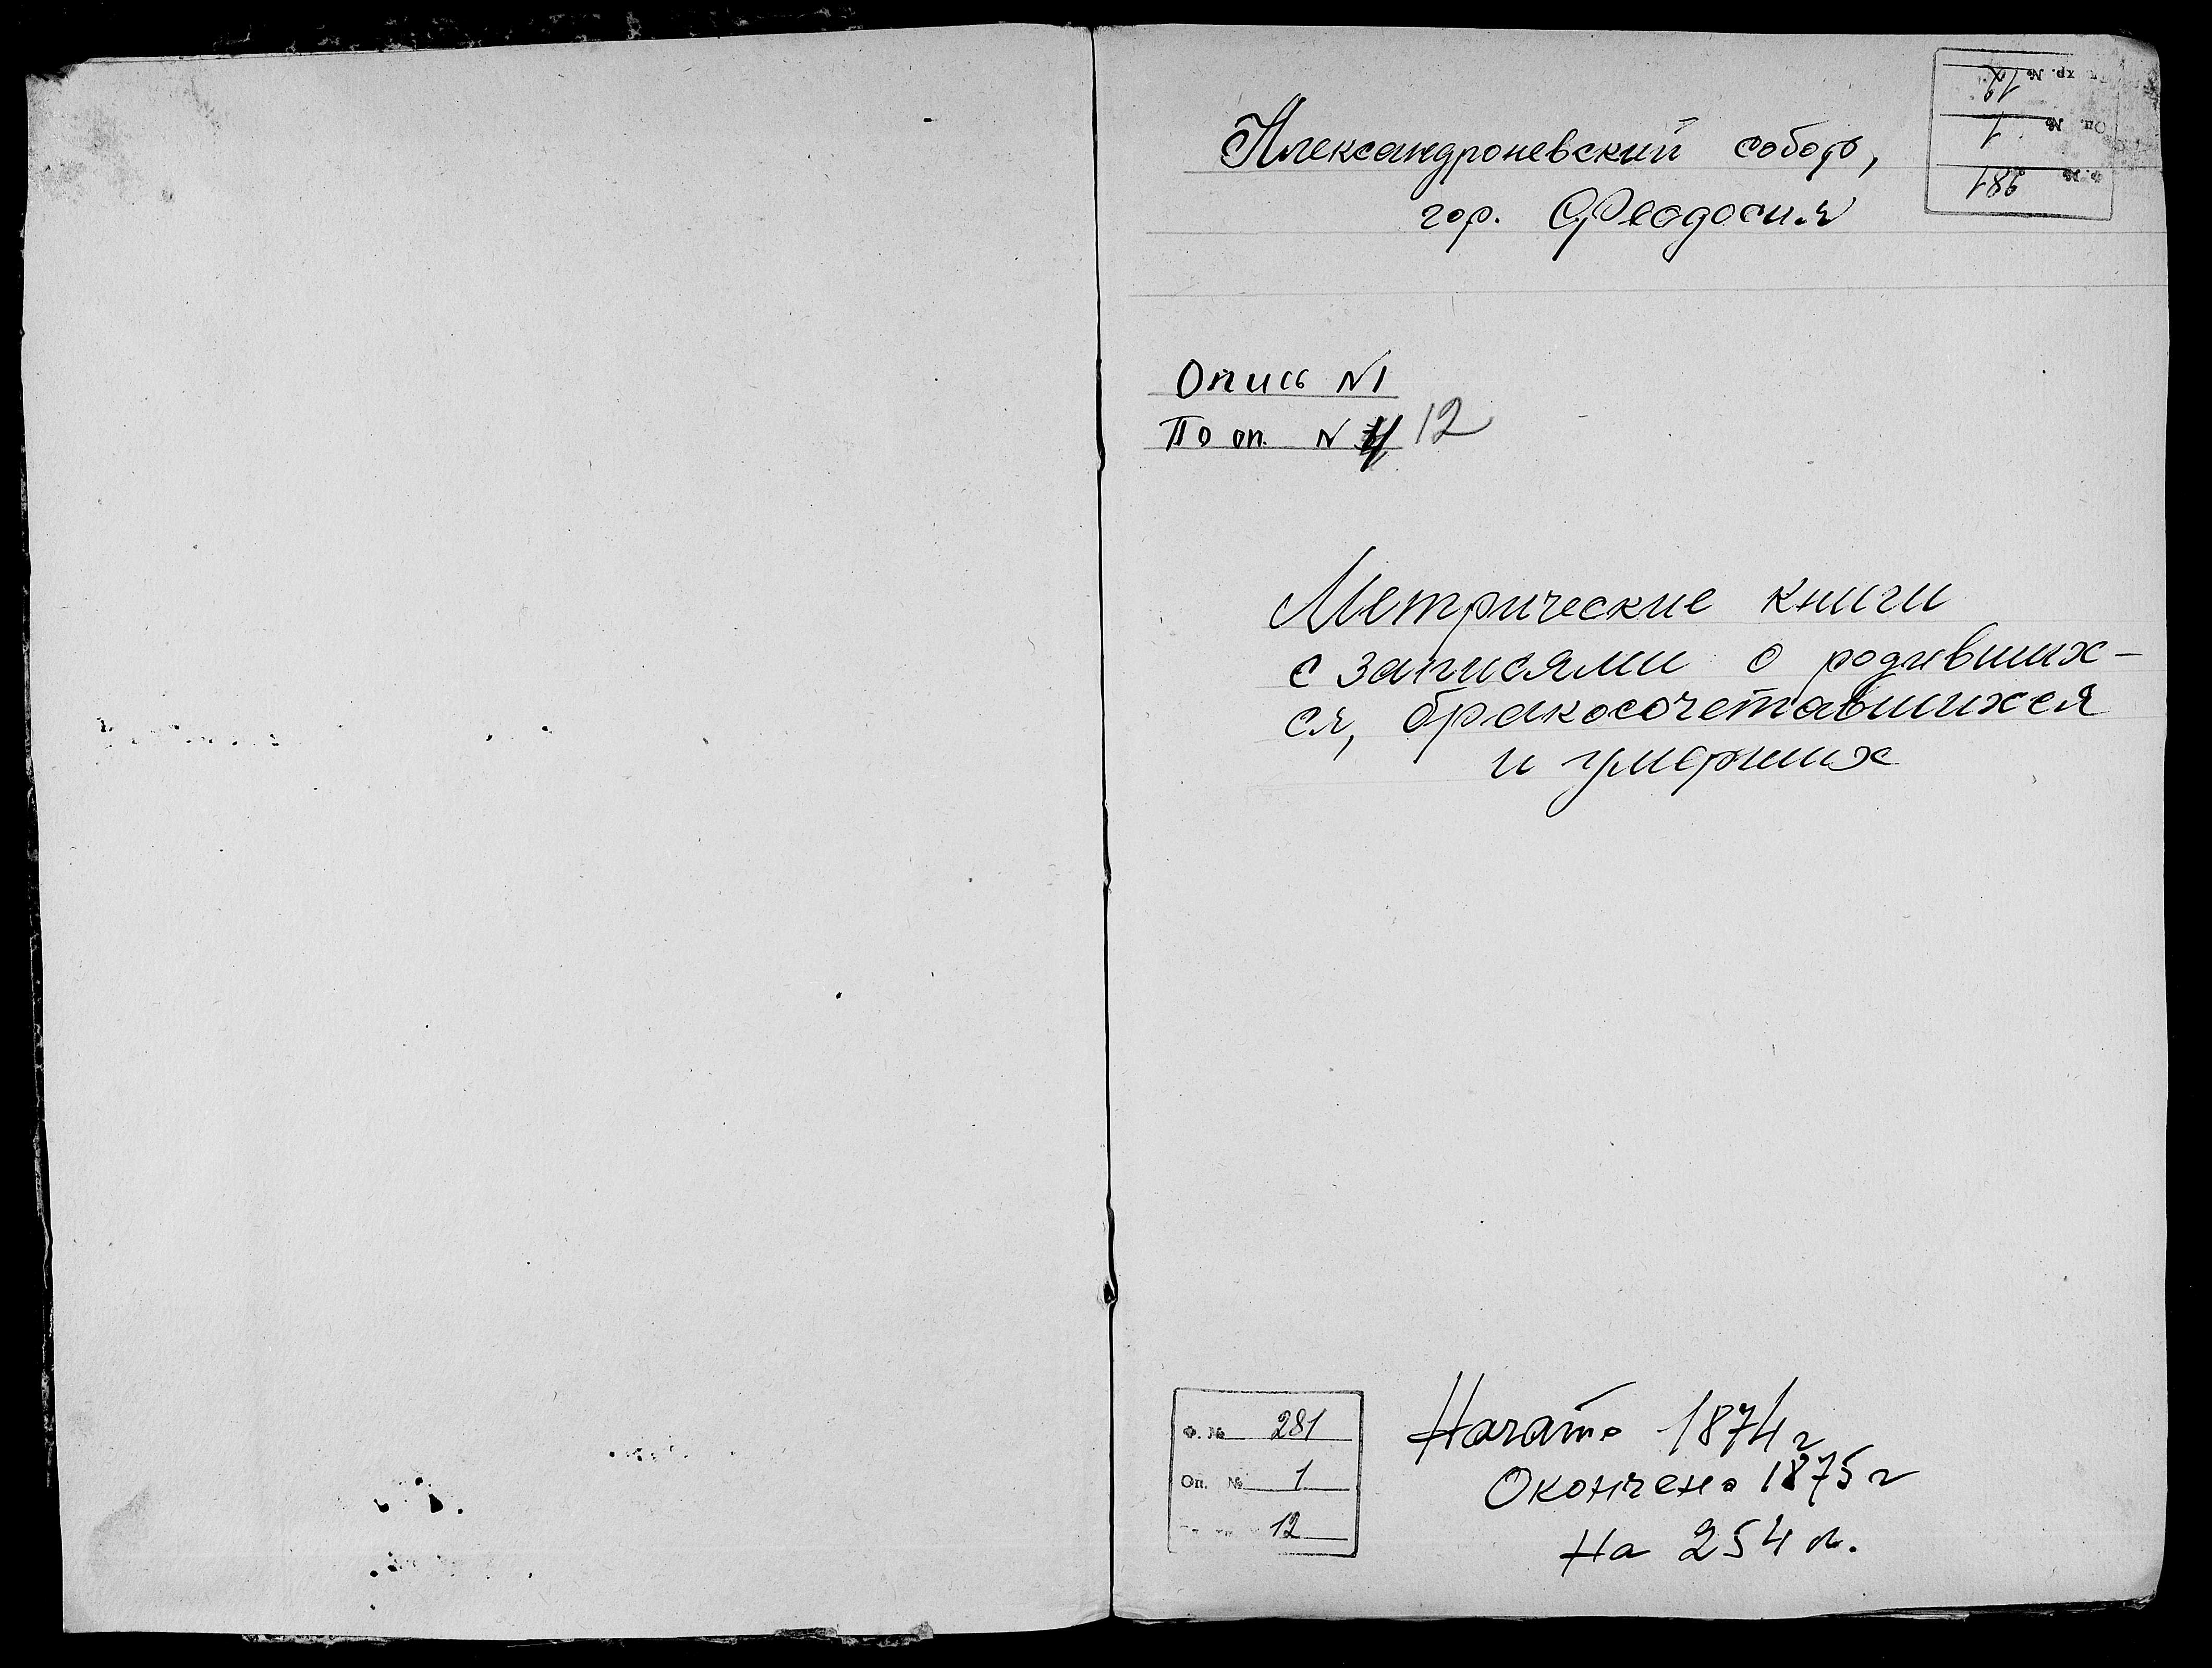 Александроневский собор,
гор. Феодосия
Ф. № 281
Оп. № 1
хр. № 12
Опись №1
По оп. № 12
Метрические книги
с записями о родивших-
ся, бракосочетавшихся
и умерших
Ф. № 281
Оп. № 1
12
Начато 1874 г
Окончено 1875 г
На 254 л.